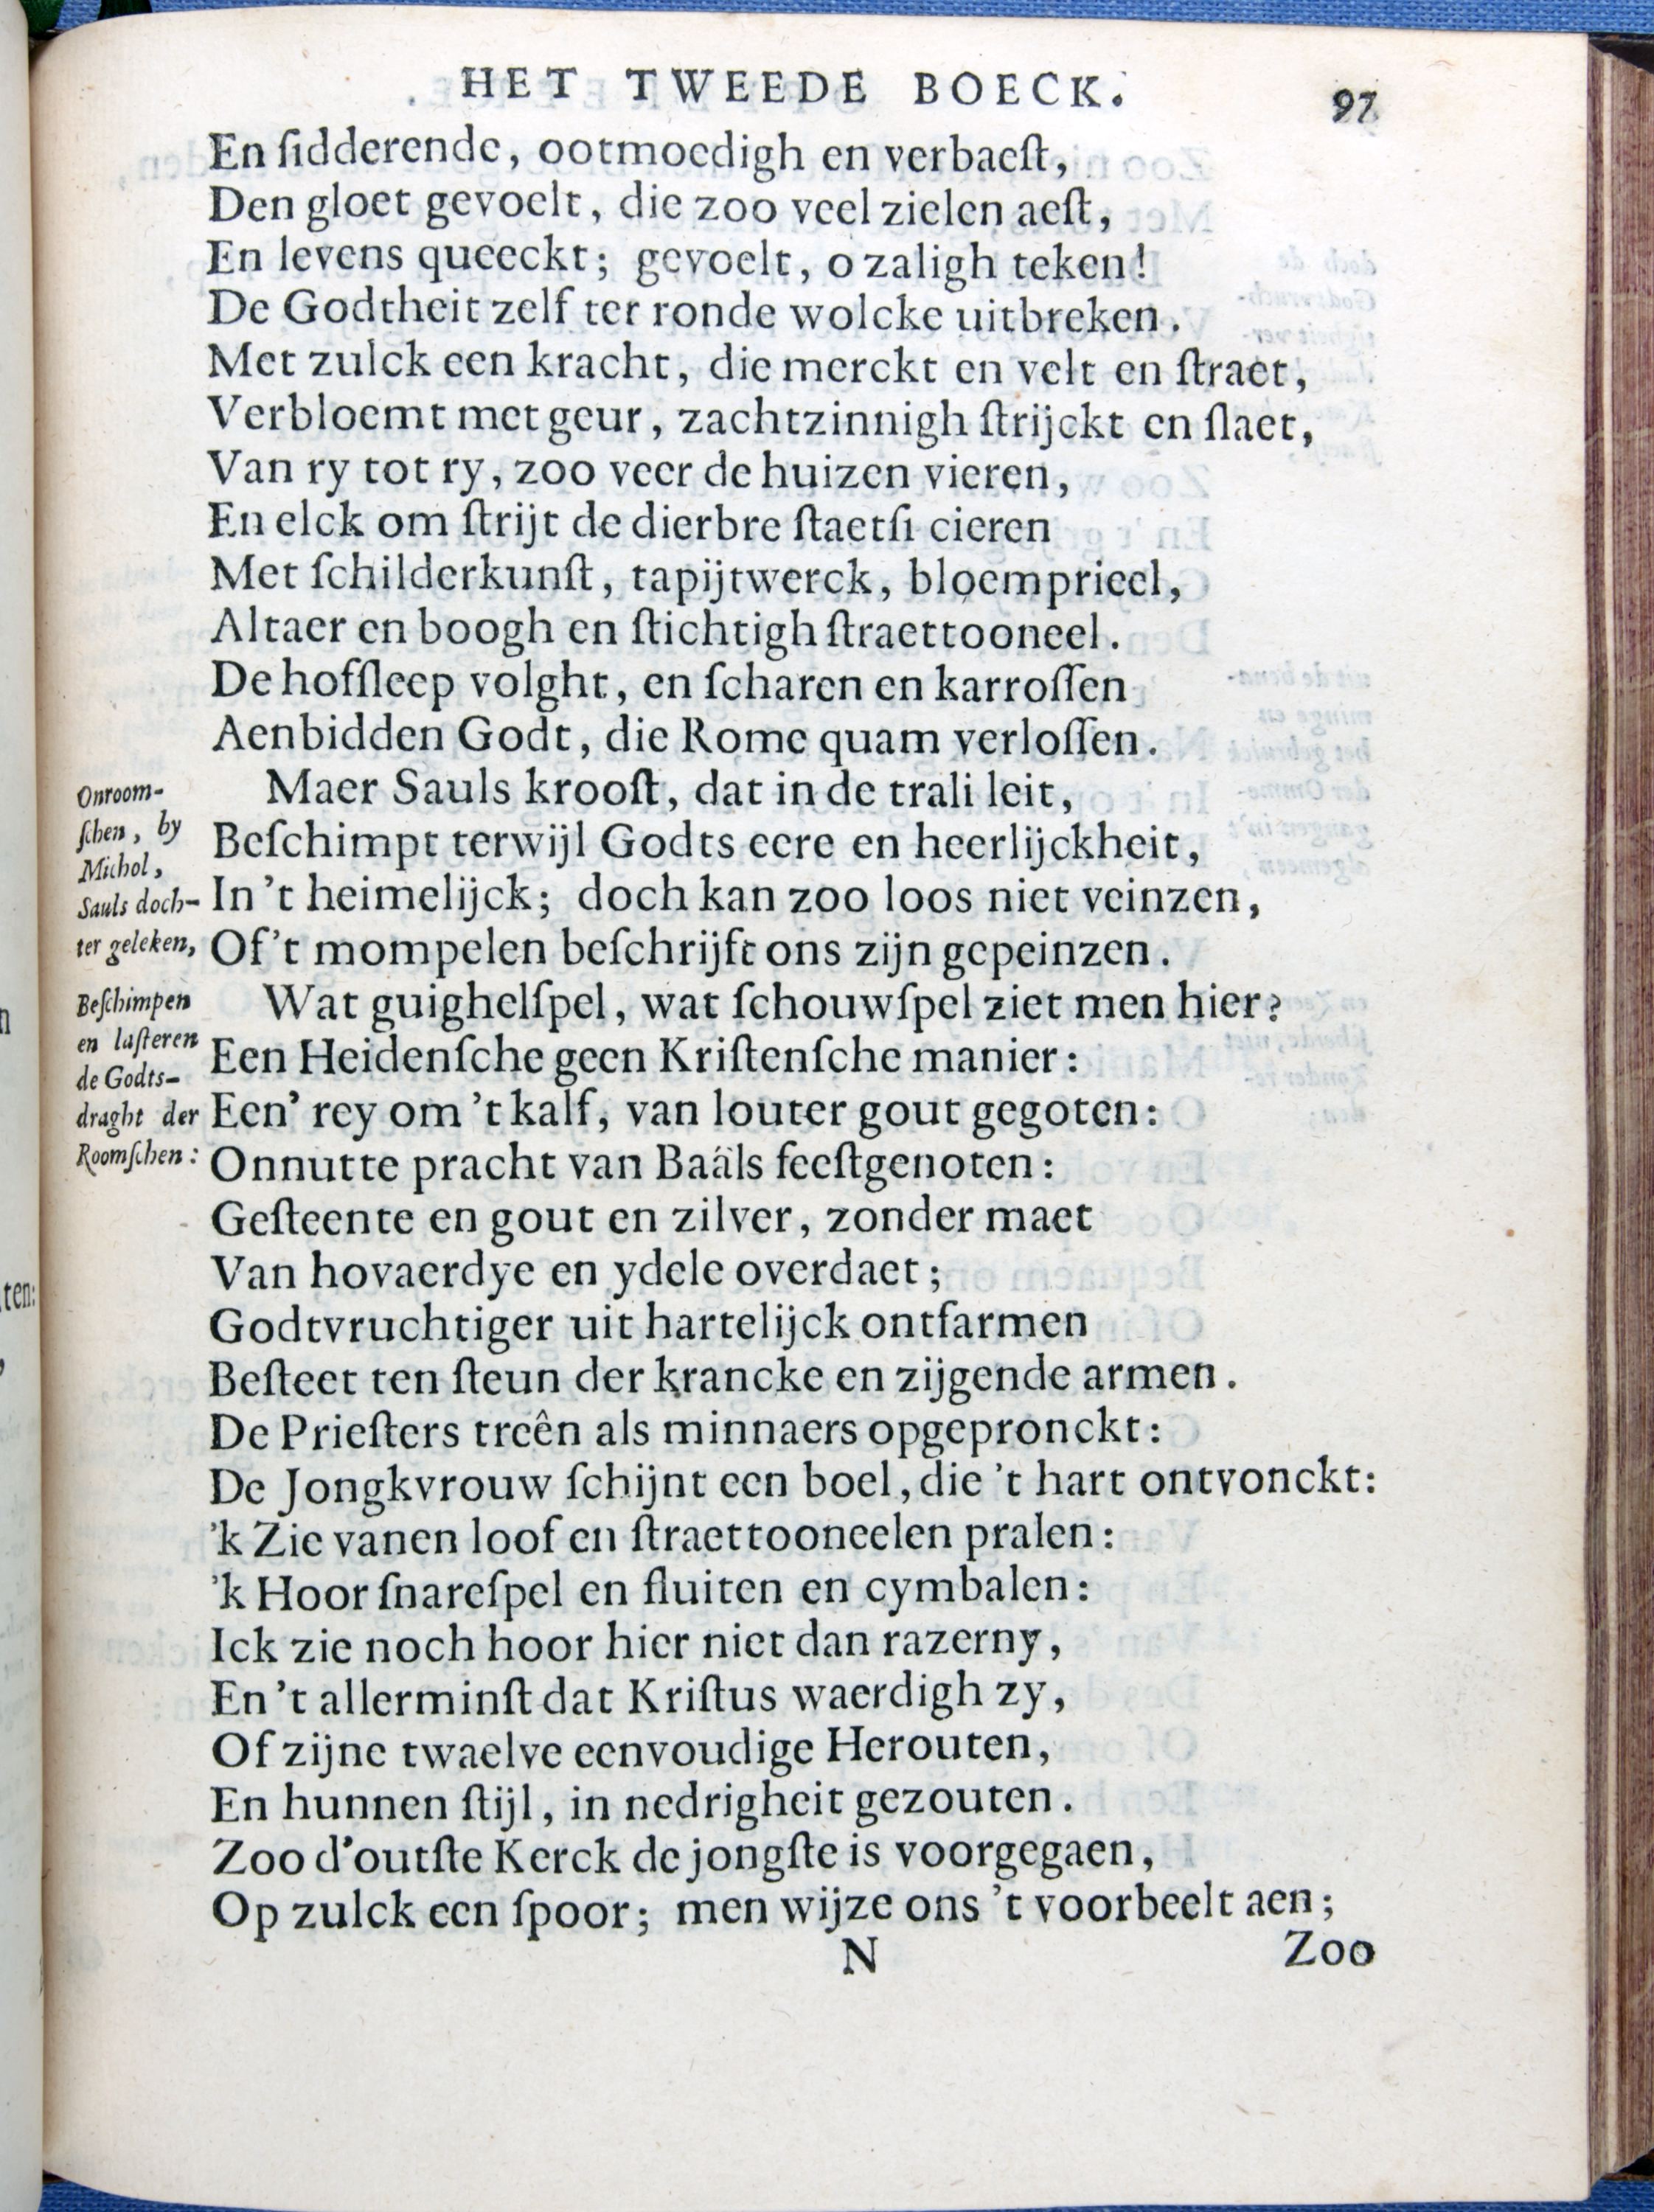 HET TWEEDE BOECK. 97
En ſidderende, ootmoedigh en verbaeſt,
Den gloet gevoelt, die zoo veel zielen aeſt,
En levens queeckt; gevoelt, o zaligh teken!
De Godtheit zelf ter ronde wolcke uitbreken.
Met zulck een kracht, die merckt en velt en ſtraet,
Verbloemt met geur, zachtzinnigh ſtrijckt en ſlaet,
Van ry tot ry, zoo veer de huizen vieren,
En elck om ſtrijt de dierbre ſtaetſi cieren
Met ſchilderkunſt, tapijtwerck, bloemprieel,
Altaer en boogh en ſtichtigh ſtraettooneel.
De hofſleep volght, en ſcharen en karroſſen
Aenbidden Godt, die Rome quam verloſſen.
Maer Sauls krooſt, dat in de trali leit,
Beſchimpt terwijl Godts eere en heerlijckheit,
In 't heimelijck; doch kan zoo loos niet veinzen,
Of 't mompelen beſchrijft ons zijn gepeinzen.
Wat guighelſpel, wat ſchouwſpel ziet men hier?
Een Heidenſche geen Kriſtenſche manier:
Een' rey om 't kalf, van louter gout gegoten:
Onnutte pracht van Baäls feeſtgenoten:
Geſteente en gout en zilver, zonder maet
Van hovaerdye en ydele overdaet;
Godtvruchtiger uit hartelijck ontfarmen
Beſteet ten ſteun der krancke en zijgende armen.
De Prieſters treên als minnaers opgepronckt:
De Jongkvrouw ſchijnt een boel, die 't hart ontvonckt:
'k Zie vanen loof en ſtraettooneelen pralen:
'k Hoor ſnareſpel en fluiten en cymbalen:
Ick zie noch hoor hier niet dan razerny,
En 't allerminſt dat Kriſtus waerdigh zy,
Of zijne twaelve eenvoudige Herouten,
En hunnen ſtijl, in nedrigheit gezouten.
Zoo d'outſte Kerck de jongſte is voorgegaen,
Op zulck een ſpoor; men wijze ons 't voorbeelt aen;
N Zoo
Onroom-
ſchen, by
Michol,
Sauls doch-
ter geleken,
Beſchimpen
en laſteren
de Godts-
draght der
Roomſchen:
ten: